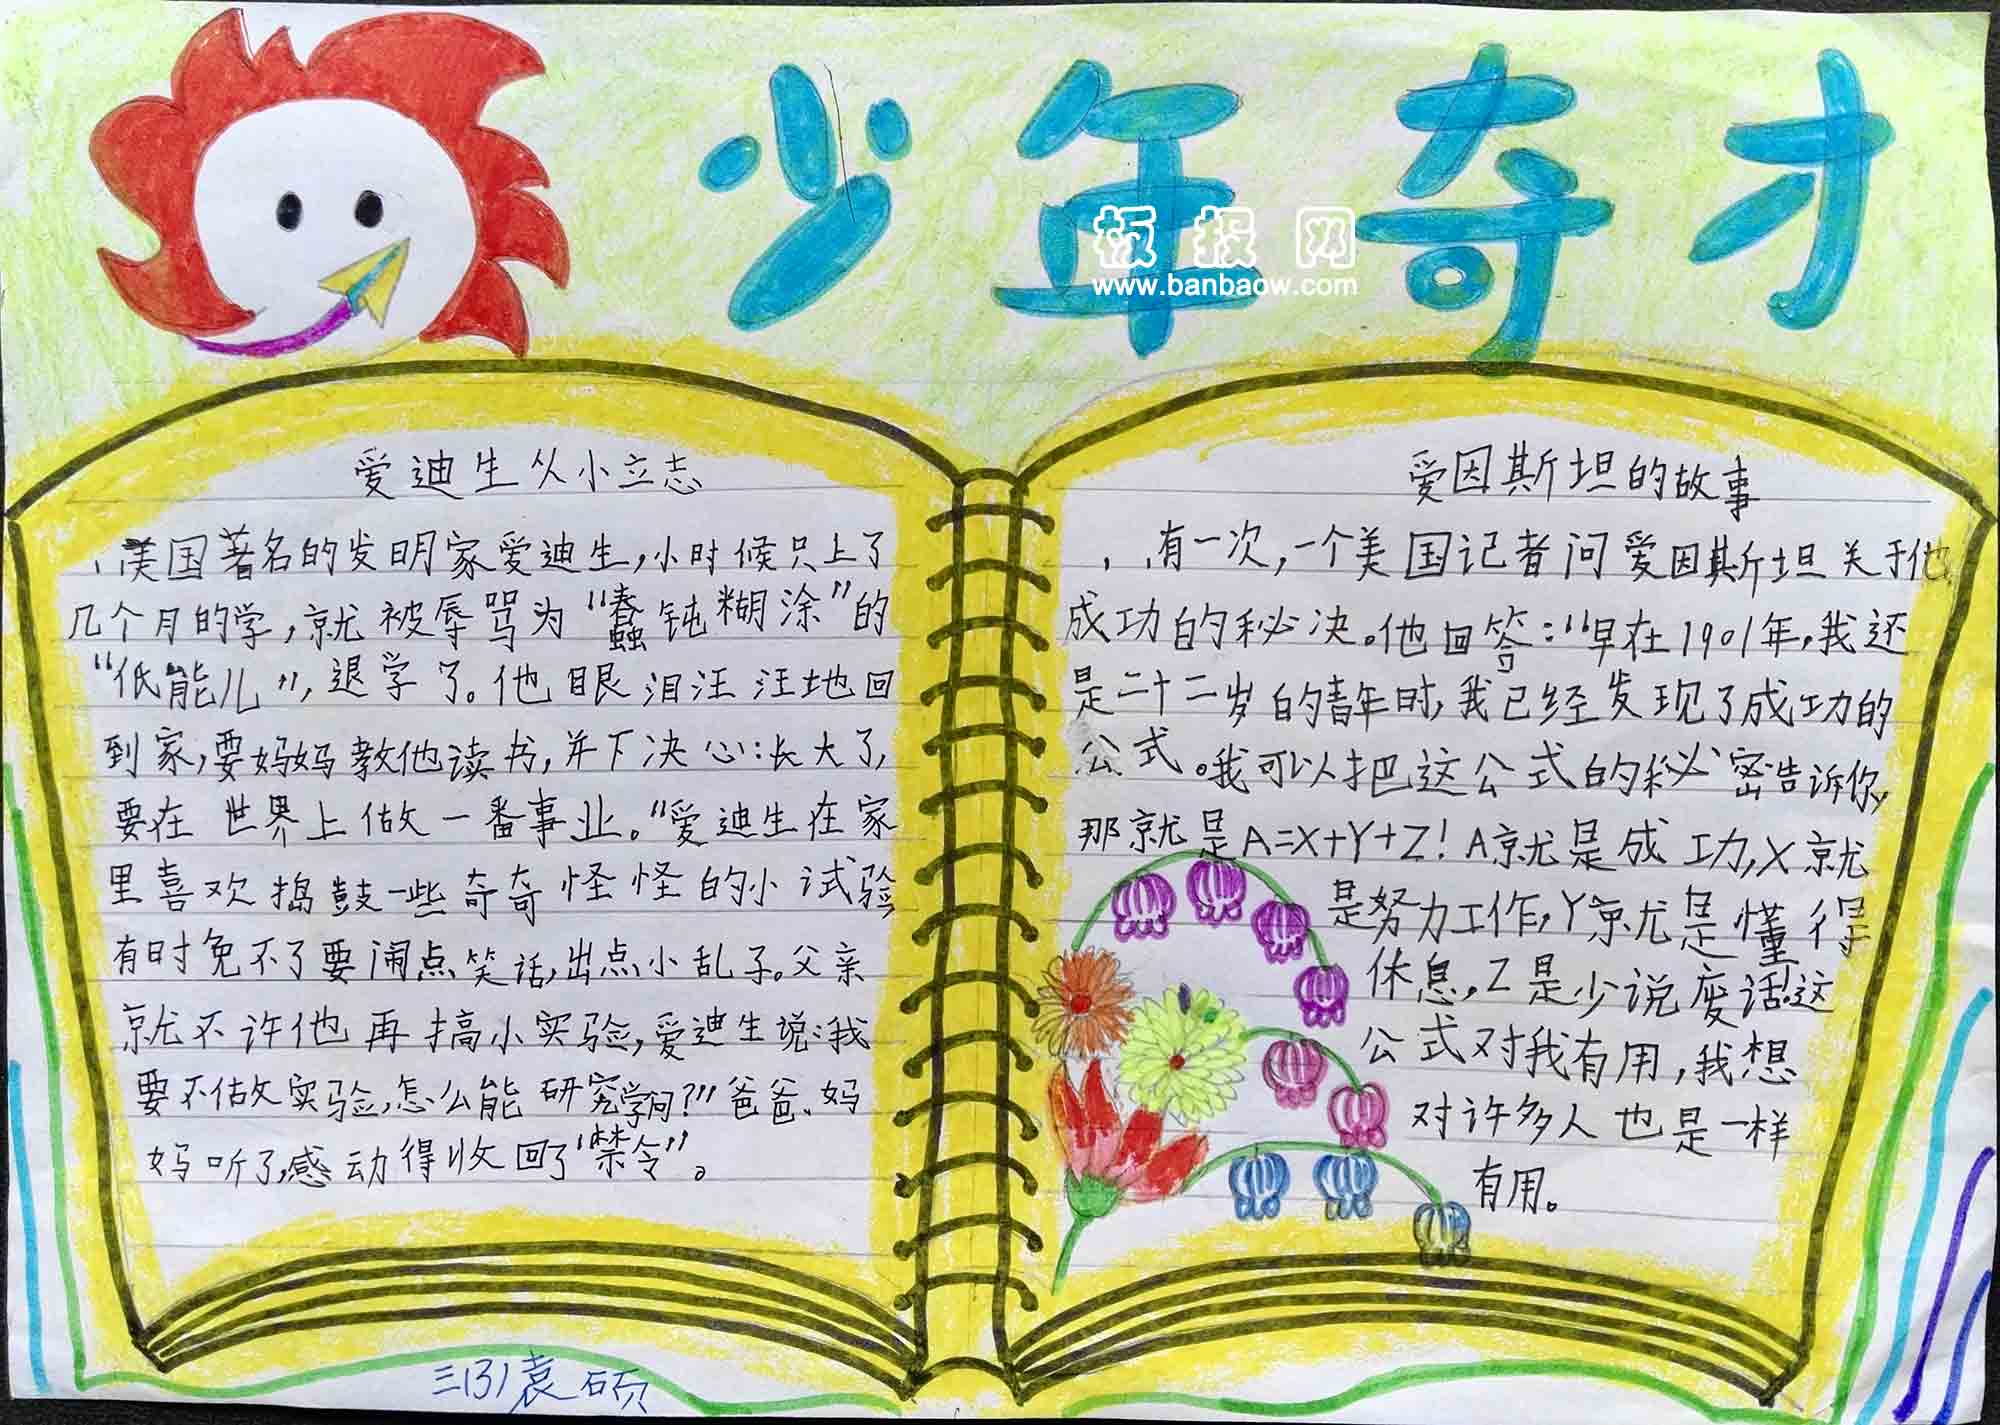 少年奇才
板报网
www.banbaow.com
爱迪生从小立志
美国著名的发明家爱迪生,小时候只上了
几个月的学,就被辱骂为“蠢钝糊涂”的
“低能儿”,退学了。他眼泪汪汪地回
到家,要妈妈教他读书,并下决心:长大了,
要在世界上做一番事业。“爱迪生在家
里喜欢捣鼓一些奇奇怪怪的小试验
有时免不了要闹点笑话,出点小乱子。父亲
就不许他再搞小实验,爱迪生说:我
要不做实验,怎么能研究学问?”爸爸、妈
妈听了,感动得收回了“禁令”。
爱因斯坦的故事
有一次,一个美国记者问爱因斯坦关于他
成功的秘决。他回答:“早在1901年,我还
是二十二岁的青年时,我已经发现了成功的
公式。我可以把这公式的秘密告诉你,
那就是A=X+Y+Z!A就是成功,X就
是努力工作,Y就是懂得
休息,Z是少说废话。这
公式对我有用,我想
对许多人也是一样
有用。
三(3)袁硕